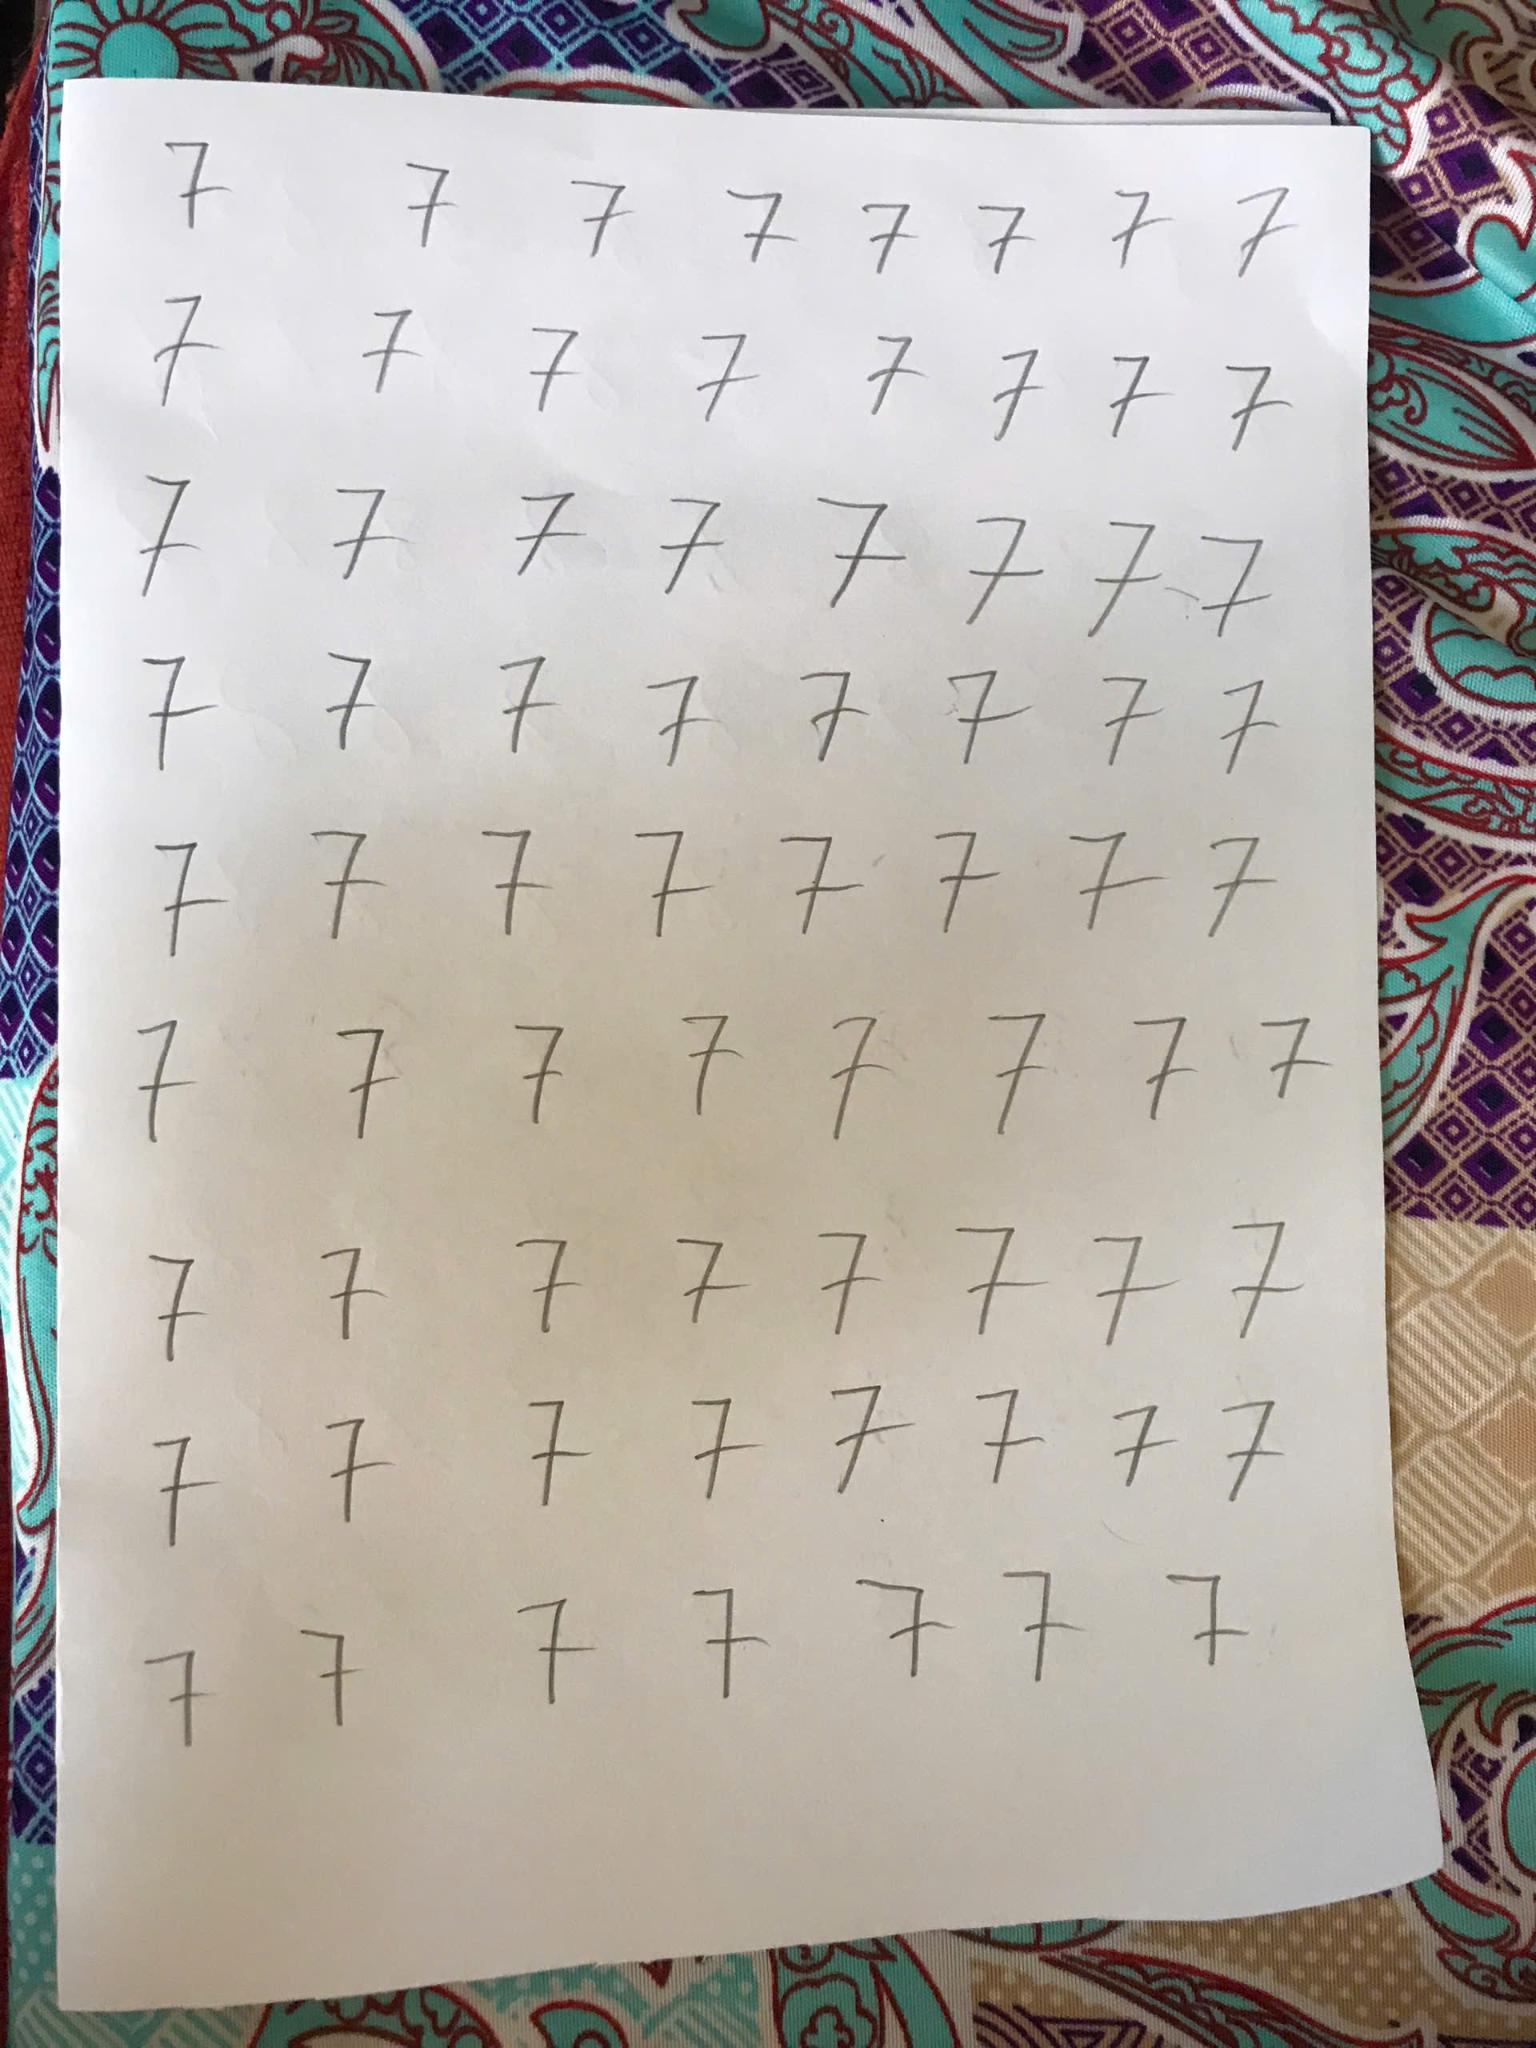 7 7 7 7 7 7 7 7
7 7 7 7 7 7 7 7
7 7 7 7 7 7 7 7
7 7 7 7 7 7 7 7
7 7 7 7 7 7 7 7
7 7 7 7 7 7 7 7
7 7 7 7 7 7 7 7
7 7 7 7 7 7 7 7
7 7 7 7 7 7 7